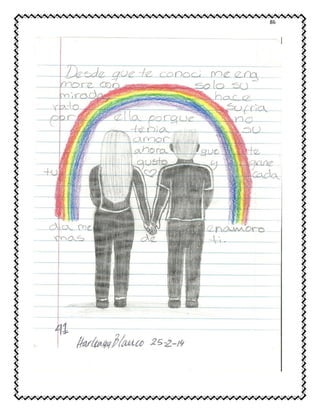 86
Desde que te conoci me ena
more con solo su
mirada hace
rato sufria
por ella porque no
tenia su
amor
ahora que te
gusto y gane
tu cada
dia me enamoro
mas de ti.
41
Blanco 25-2-14